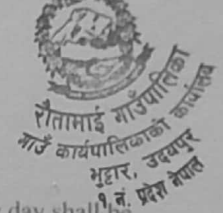 रौतामाई गाउँपालिका
गाउँ कार्यपालिकाको कार्यालय
भुट्टार, उदयपुर
१ नं. प्रदेश नेपाल
day shall be